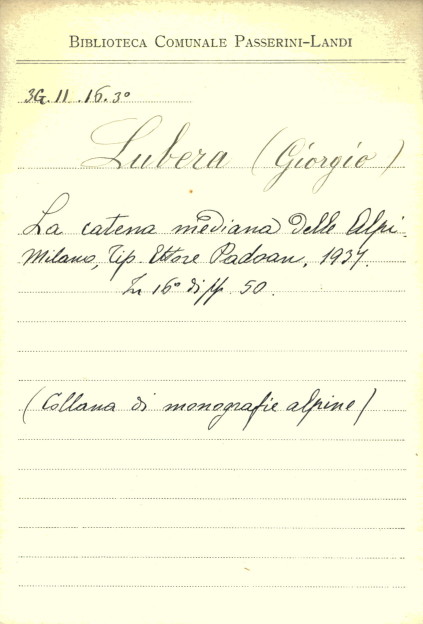 BIBLIOTECA COMUNALE PASSERINI-LANDI
3G. II. 16. 3°
Lubera (Giorgio)
La catena mediana delle Alpi.
Milano, Tip. Ettore Padoan, 1937.
In 16° di pp. 50.
(Collana di monografie alpine)